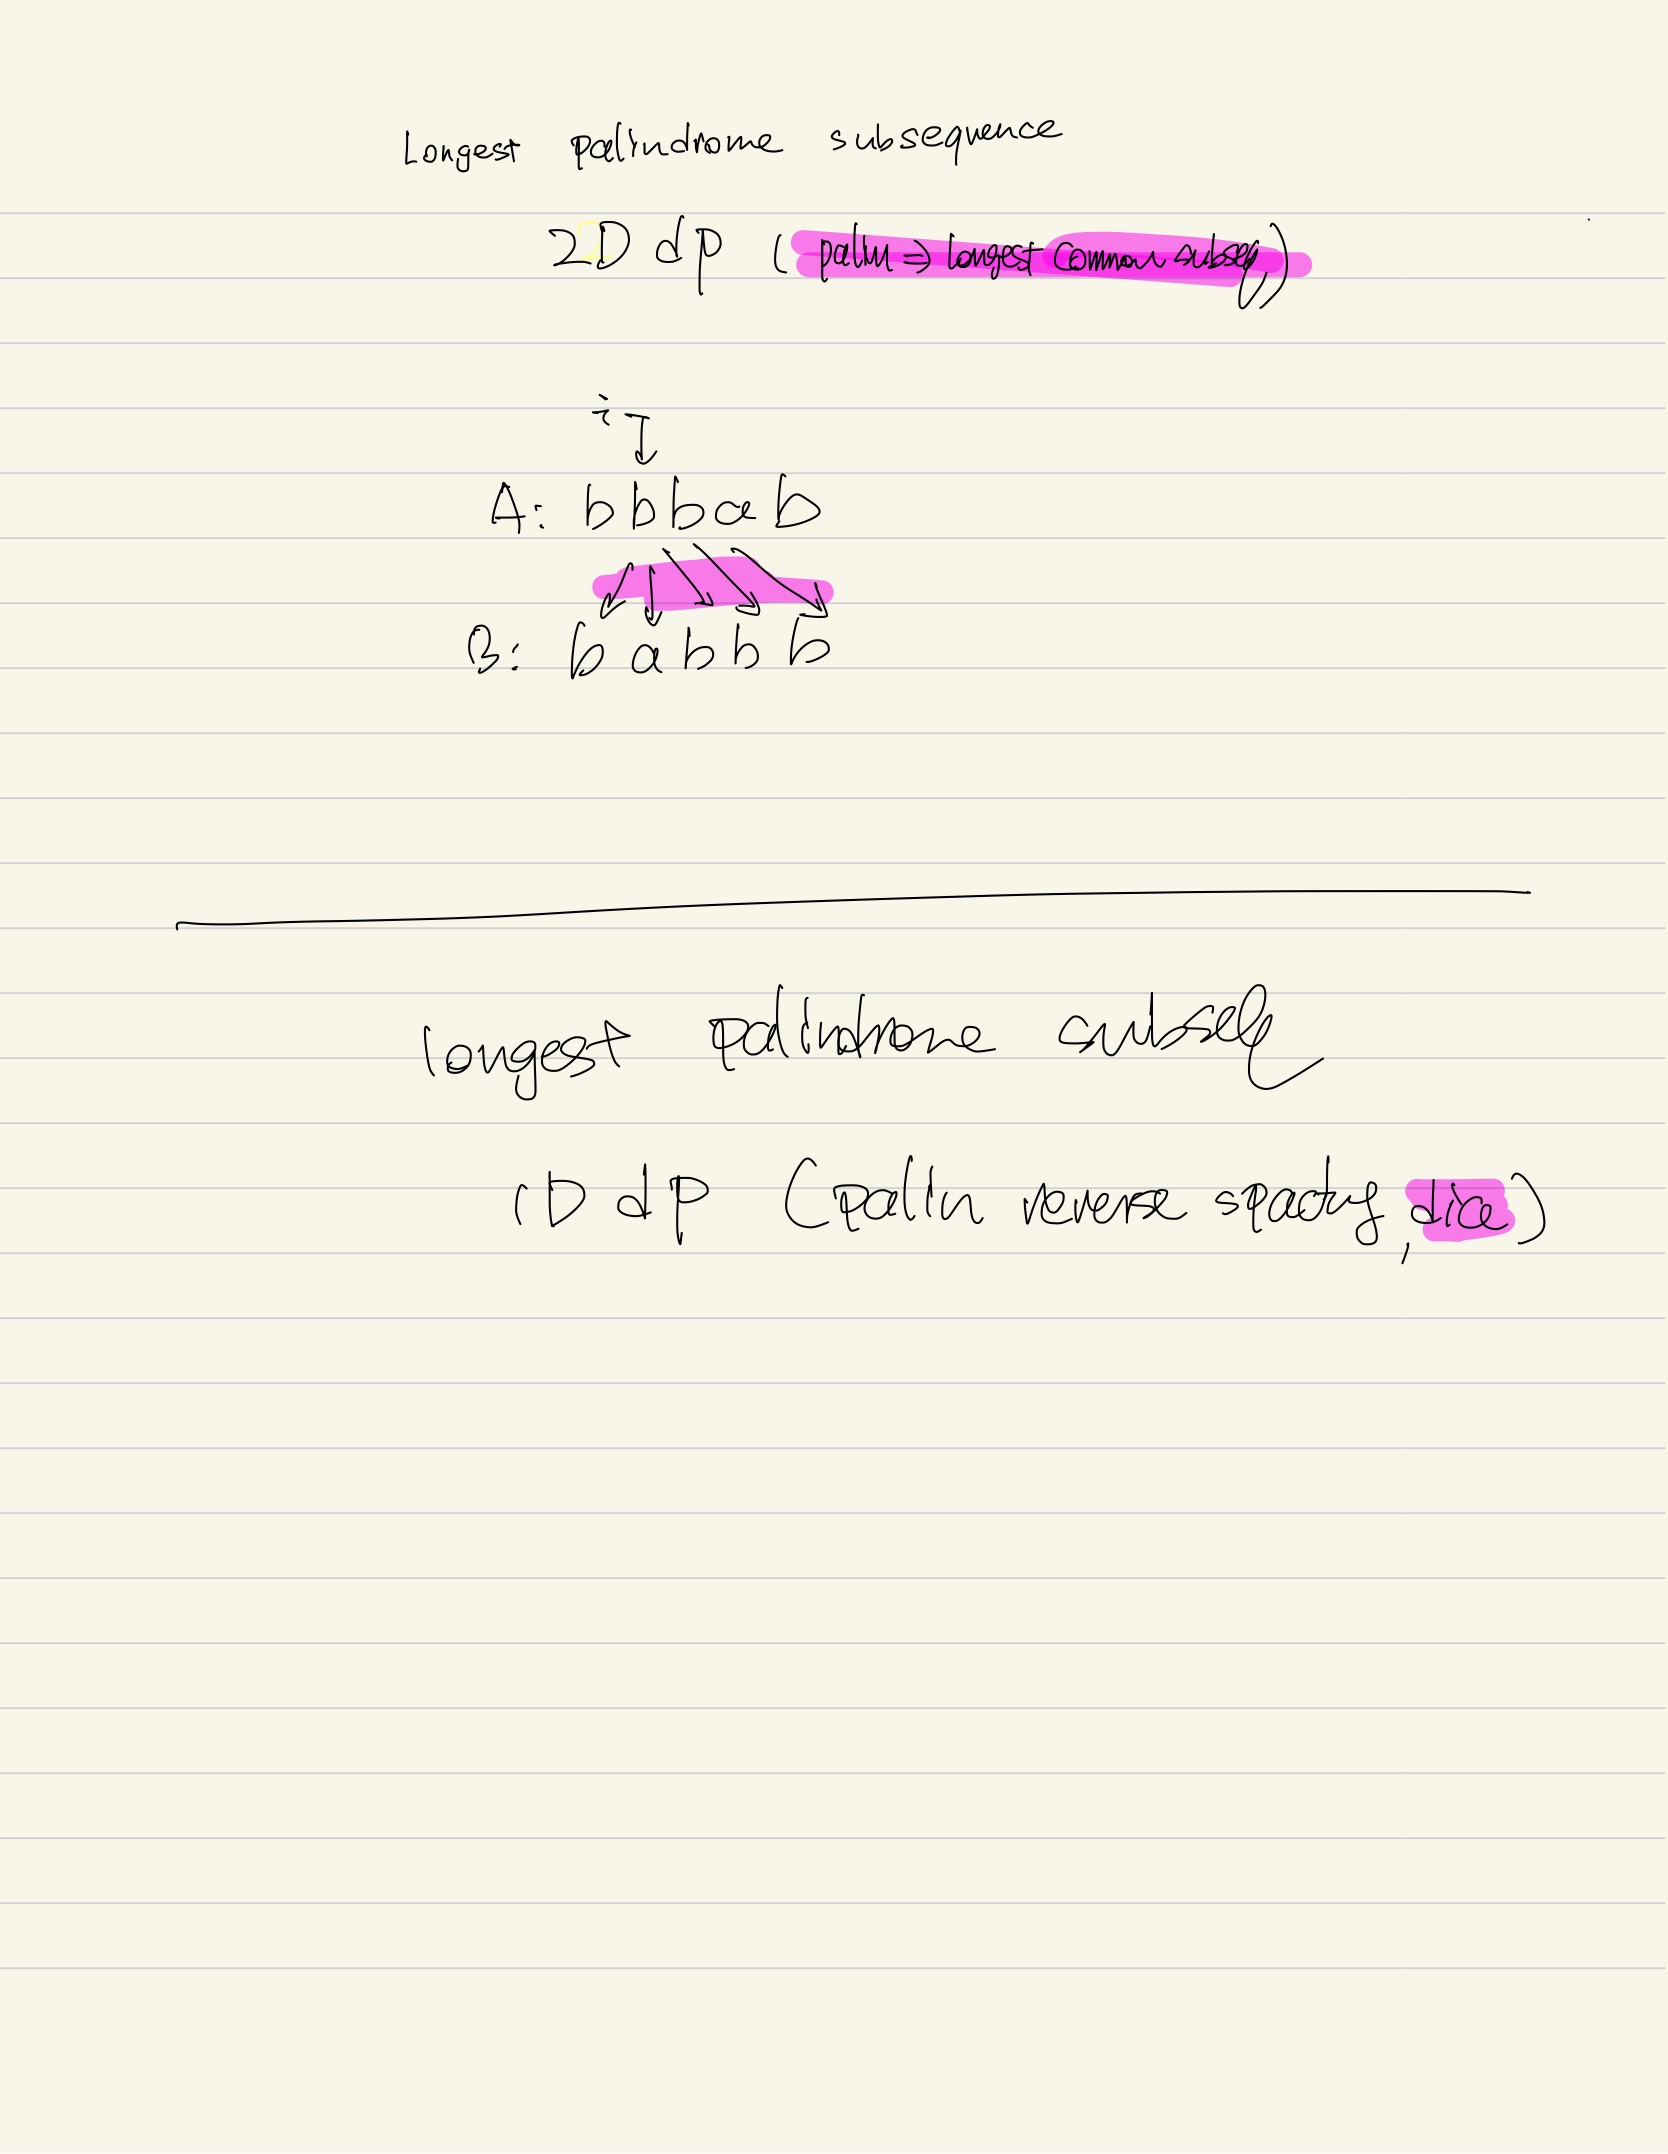 Longest palindrome subsequence
2D dp (palin => longest common subseq)
i
A: b b b a b
B: b a b b b
longest palindrome subseq
1D dp (palin reverse , dice)